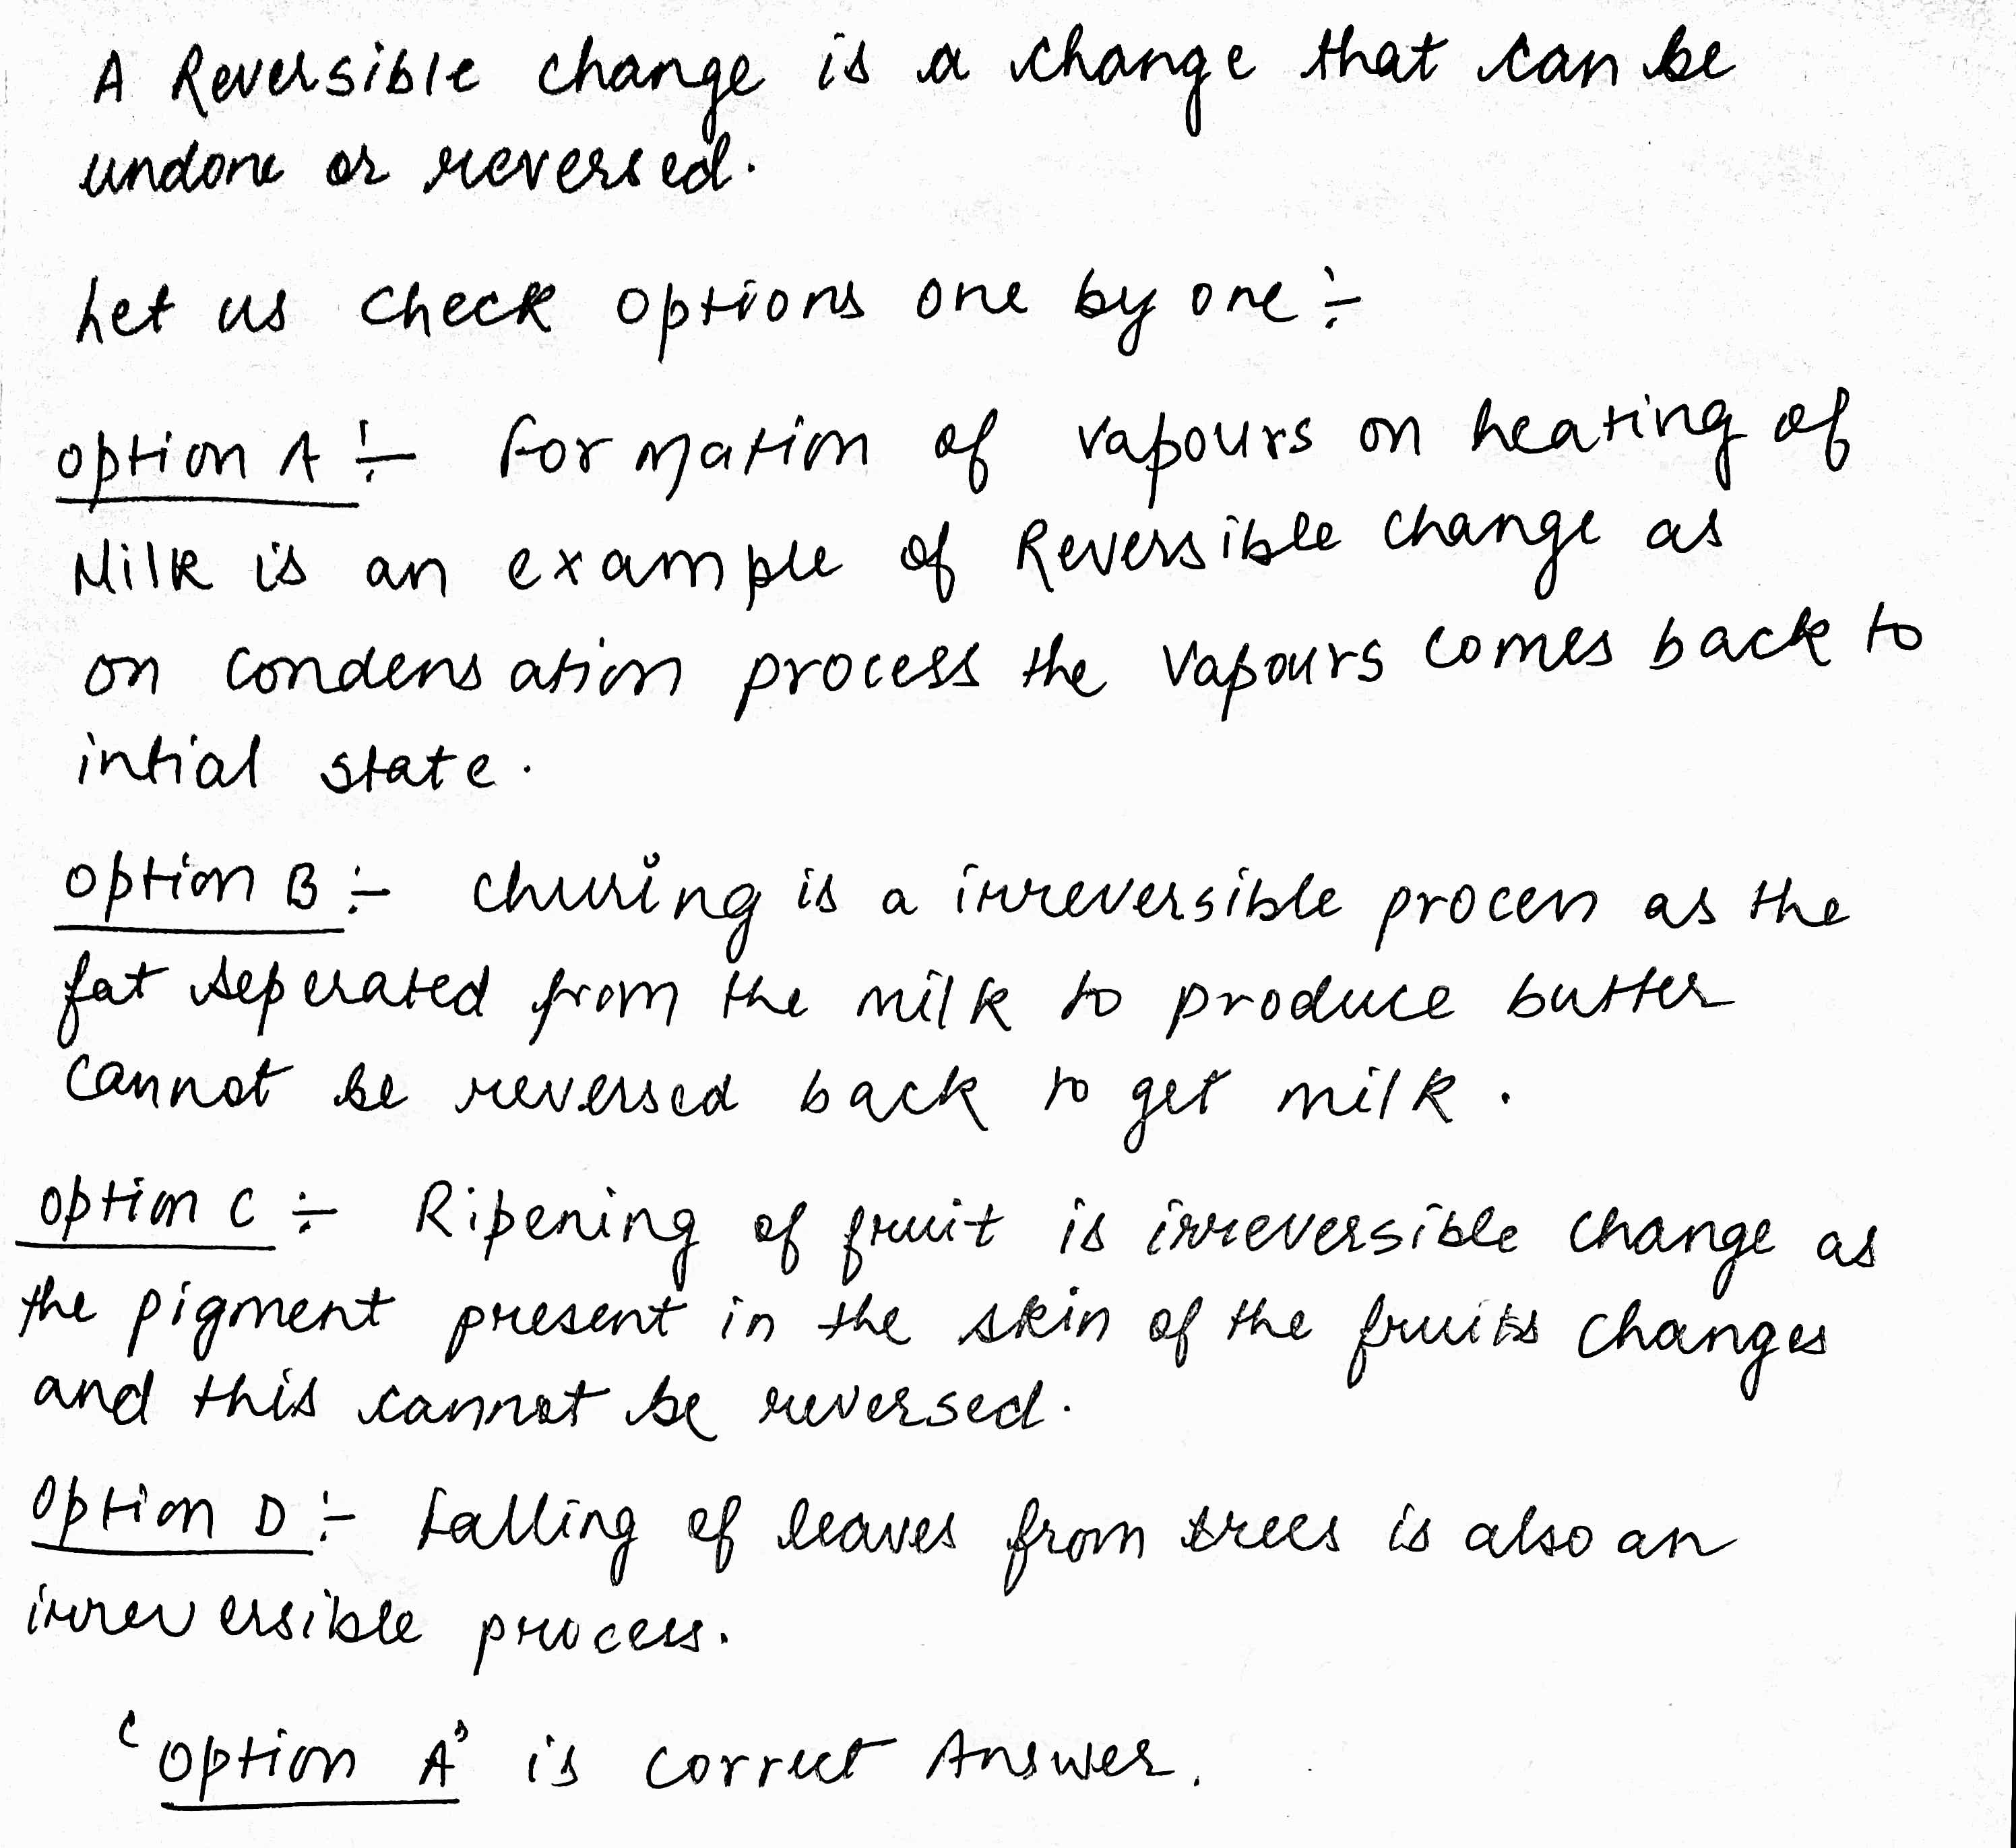 A Reversible change is a change that can be
undone or reversed.
Let us check options one by one :-
option A :- Formation of vapours on heating of
Milk is an example of Reversible change as
on condensation process the vapours comes back to
intial state.
option B :- churing is a irreversible process as the
fat seperated from the milk to produce butter
cannot be reversed back to get milk.
option C :- Ripening of fruit is irreversible change as
the pigment present in the skin of the fruits changes
and this cannot be reversed.
option D :- Falling of leaves from trees is also an
irreversible process.
'option A' is correct Answer.